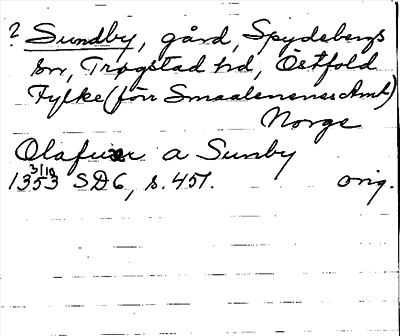 ? Sundby, gård, Spydebergs
sn, Trøgstad hd, Östfold
Fylke (förr Smaalenenes Amt)
Norge
Olafuer a Sunby
3/10
1353 SD6, s. 451. orig.